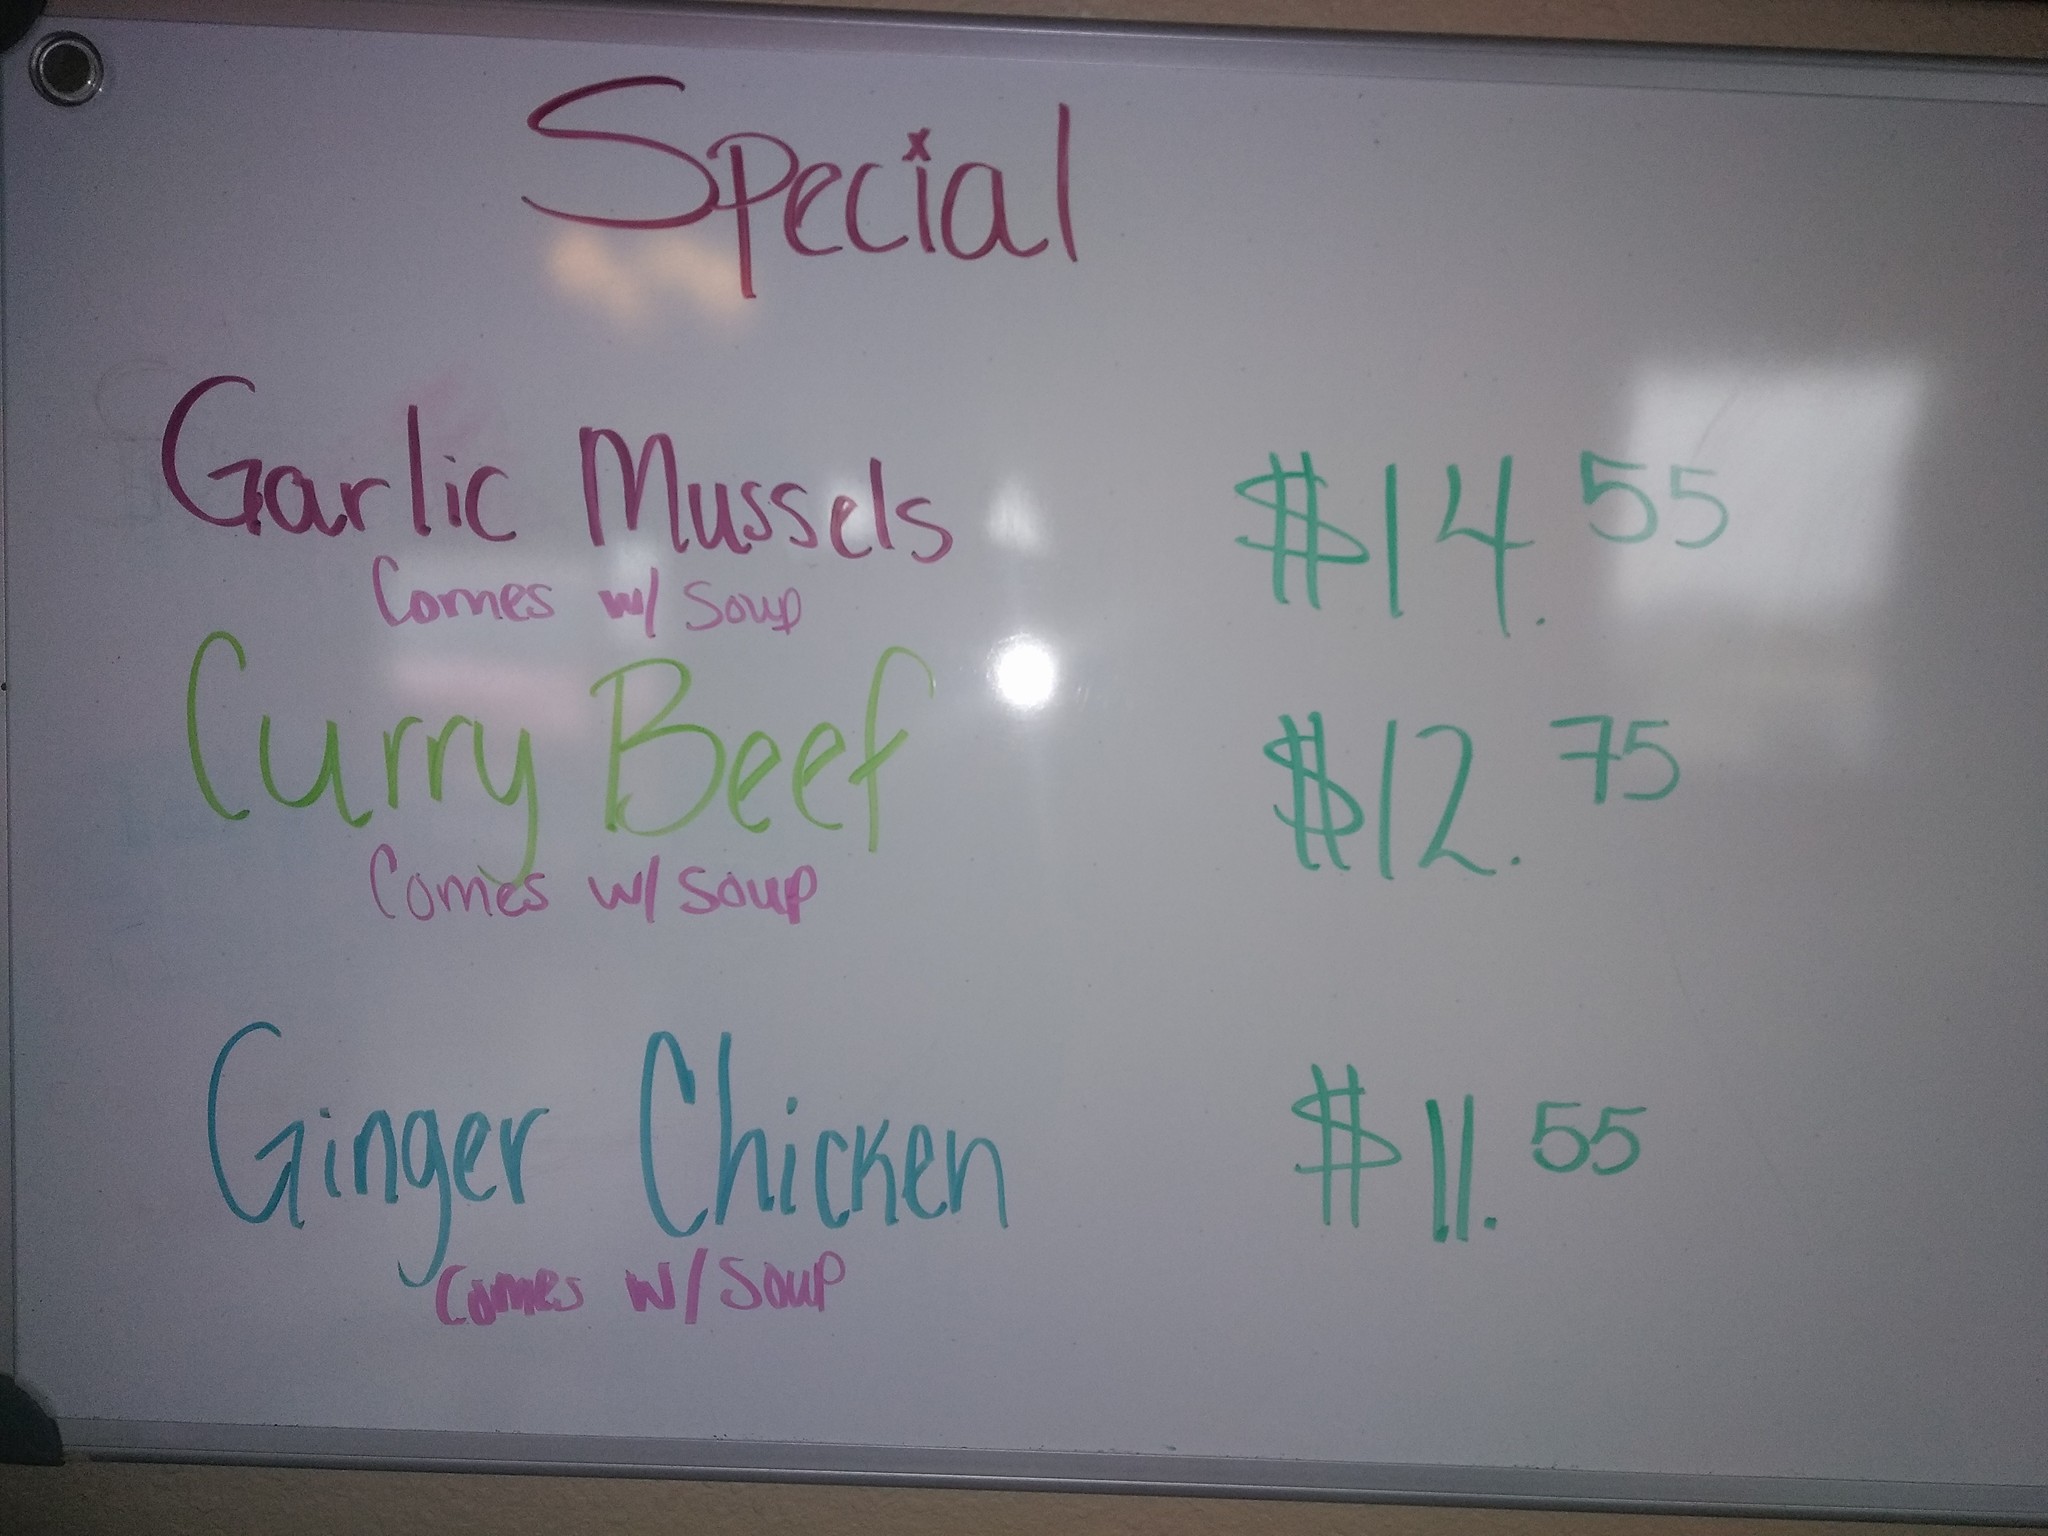 Special
Garlic Mussels $14.55
Comes w/ Soup
Curry Beef $12.75
Comes w/ Soup
Ginger Chicken $11.55
Comes w/ Soup